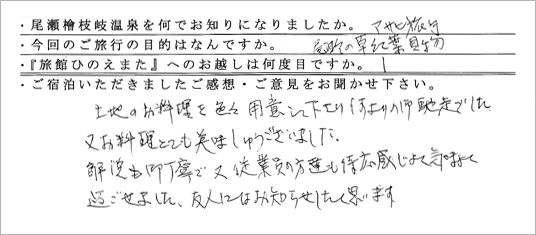 ・尾瀬檜枝岐温泉を何でお知りになりましたか。 アサヒ旅行
・今回のご旅行の目的はなんですか。 の草紅葉見物
・『旅館ひのえまた』へのお越しは何度目ですか。 1
・ご宿泊いただきましたご感想・ご意見をお聞かせ下さい。
土地のお料理を色々用意して下さりなによりの御馳走でした
又お料理とても美味しゅうございました。
解説も御丁寧で又従業員の方達も大変感じよく気持よく
過ごせました、友人にはお知らせしたく思います